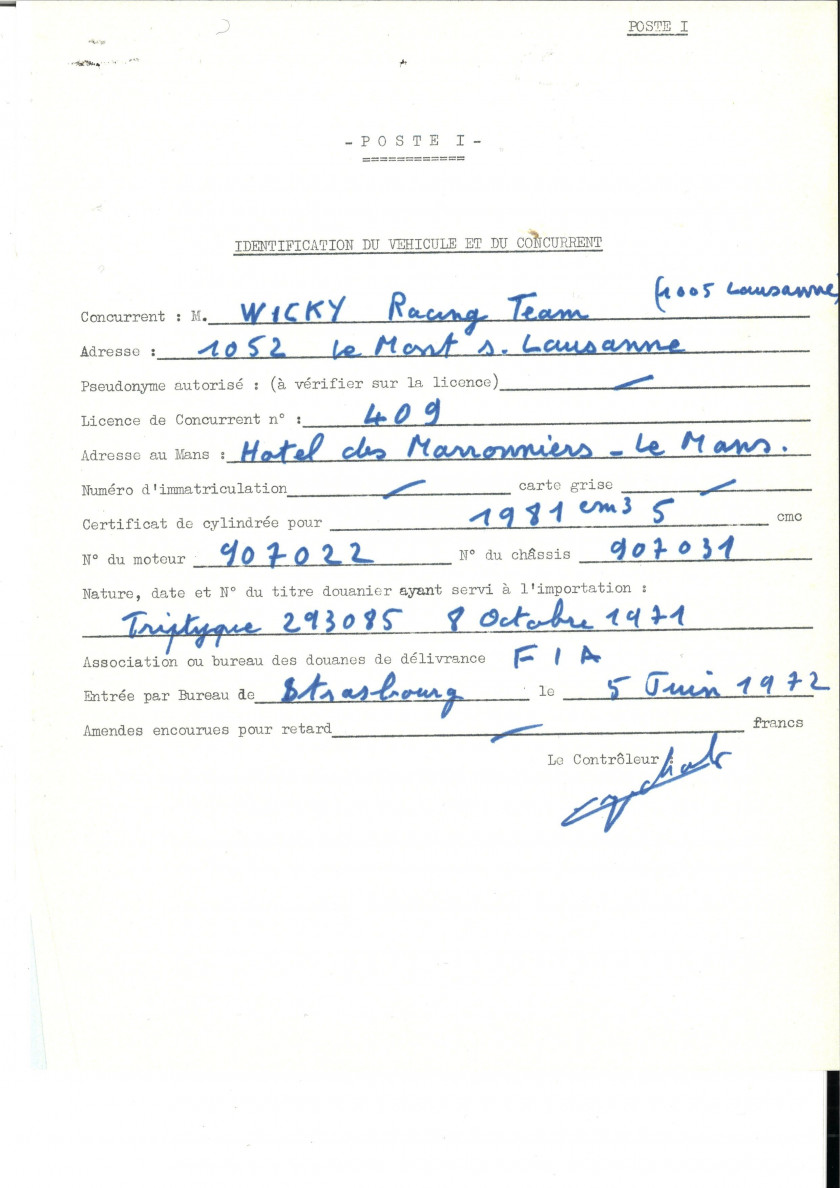 POSTE I
- P O S T E  I -
============
IDENTIFICATION DU VEHICULE ET DU CONCURRENT
(1005 Lausanne)
Concurrent : M. WICKY Racing Team
Adresse : 1052 Le Mont s. Lausanne
Pseudonyme autorisé : (à vérifier sur la licence) —
Licence de Concurrent n° : 409
Adresse au Mans : Hotel des Marronniers - Le Mans.
Numéro d'immatriculation — carte grise —
Certificat de cylindrée pour 1981 cm3 5 cmc
N° du moteur 907022 N° du châssis 907031
Nature, date et N° du titre douanier ayant servi à l'importation :
Triptyque 293085 8 Octobre 1971
Association ou bureau des douanes de délivrance FIA
Entrée par Bureau de Strasbourg le 5 Juin 1972
Amendes encourues pour retard — francs
Le Contrôleur :